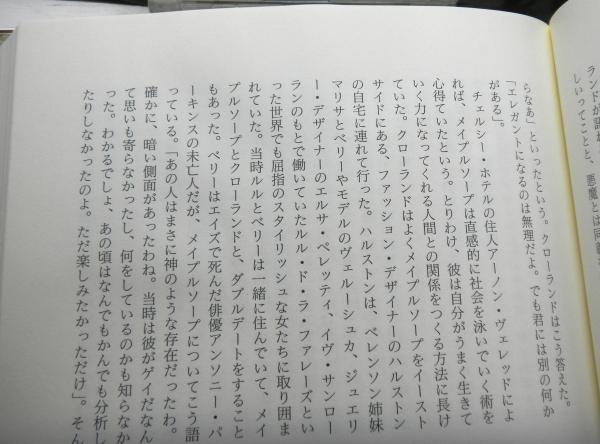 ランドが訊ね
しいってことと、悪魔とは同義
らなあ」といったという。クローランドはこう答えた。
「エレガントになるのは無理だよ。でも君には別の何か
がある」。
チェルシー・ホテルの住人アーノン・ヴェレッドによ
れば、メイプルソープは直感的に社会を泳いでいく術を
心得ていたという。とりわけ、彼は自分がうまく生きて
いく力になってくれる人間との関係をつくる方法に長け
ていた。クローランドはよくメイプルソープをイースト
サイドにある、ファッション・デザイナーのハルストン
の自宅に連れて行った。ハルストンは、ベレンソン姉妹
マリサとベリーやモデルのヴェルーシュカ、ジュエリ
ー・デザイナーのエルサ・ペレッティ、イヴ・サンロー
ランのもとで働いていたルル・ド・ラ・ファレーズとい
った世界でも屈指のスタイリッシュな女たちに取り囲ま
れていた。当時ルルとベリーは一緒に住んでいて、メイ
プルソープとクローランドと、ダブルデートをすること
もあった。ベリーはエイズで死んだ俳優アンソニー・パ
ーキンスの未亡人だが、メイプルソープについてこう語
っている。「あの人はまさに神のような存在だったわ。
確かに、暗い側面があったわね。当時は彼がゲイだなん
て思いも寄らなかったし、何をしているのかも知らなか
った。わかるでしょ、あの頃はなんでもかんでも分析し
たりしなかったのよ。ただ楽しみたかっただけ」。そん